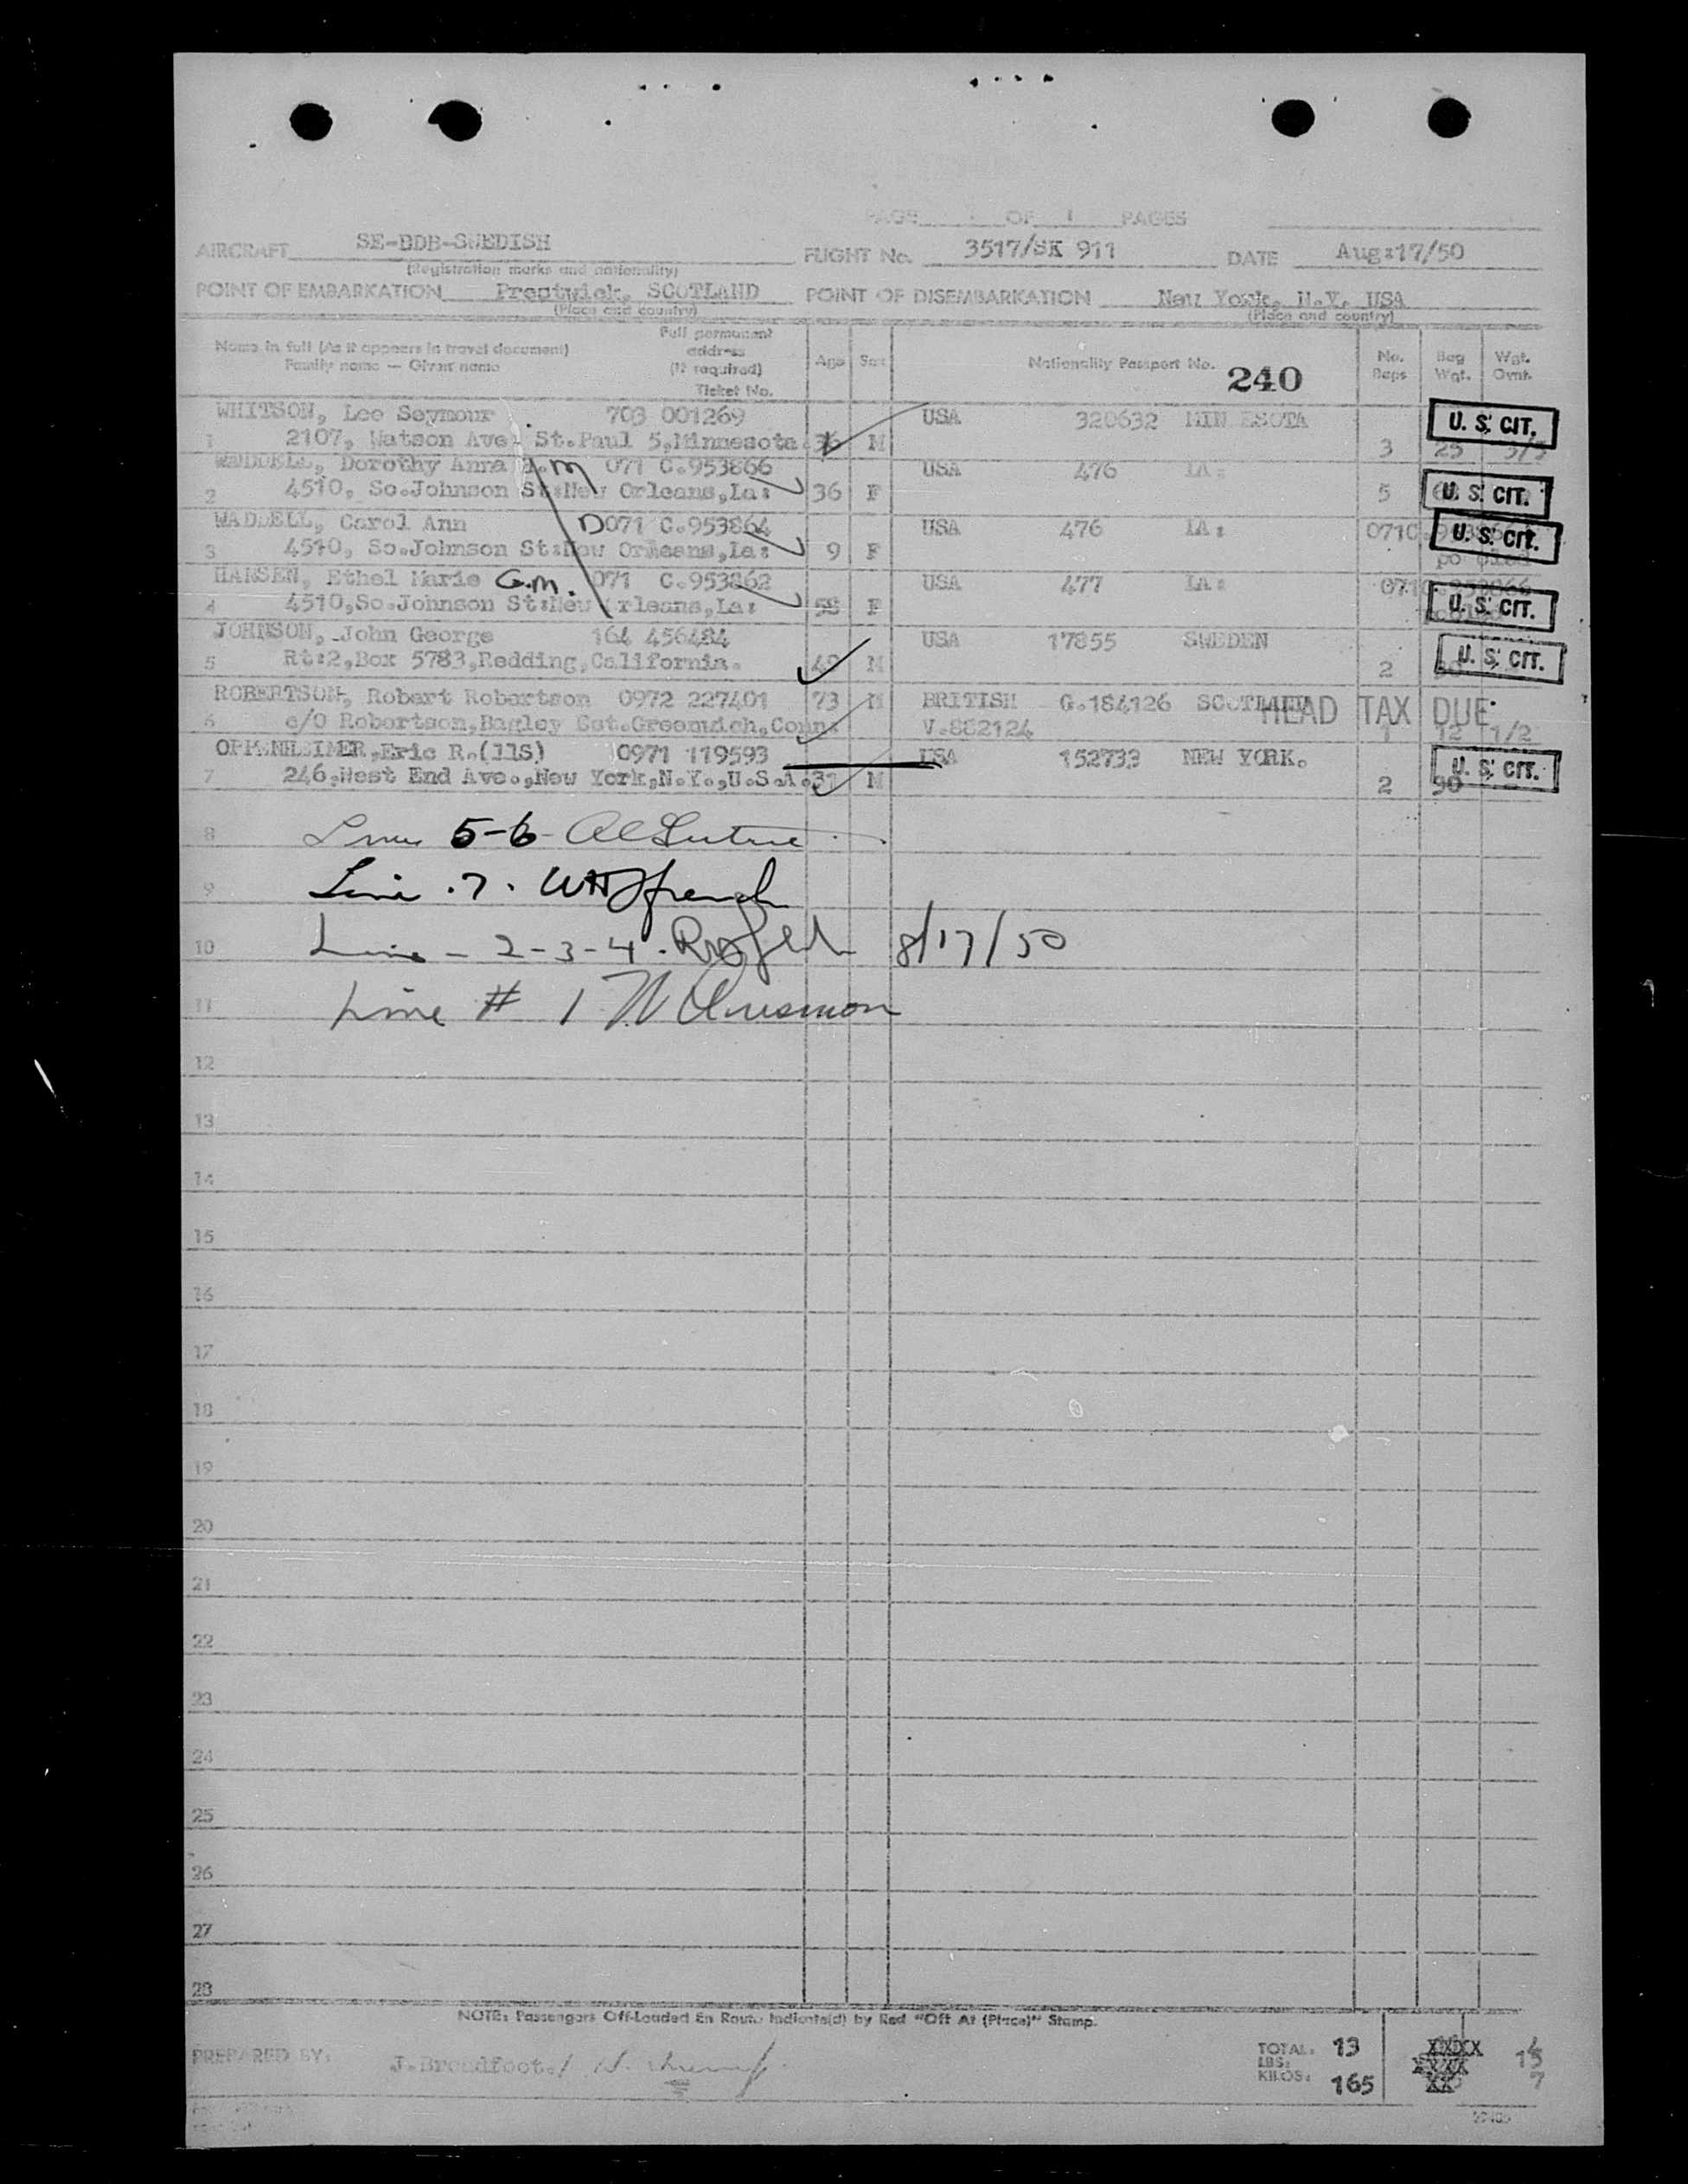 PAGE OF 1 PAGES
AIRCRAFT SE-BDB-SWEDISH FLIGHT No. 3517/SK 911 DATE Aug:17/50
(Registration marks and nationality)
POINT OF EMBARKATION Prestwick, SCOTLAND POINT OF DISEMBARKATION New York, N.Y. USA
(Place and country) (Place and country)
Name in full (As it appears in travel document) Full permanent address (If required) Age Sex Nationality Passport No. No. Bags Bag Wgt. Wgt.
Family name — Given name Ticket No. 240
WHITSON, Lee Seymour 703 001269 USA 320632 MIN ESOTA U. S. CIT.
1 2107, Watson Ave: St.Paul 5,Minnesota. 36 M 3 25
WADDELL, Dorothy Anna 071 C.953866 USA 476 LA:
2 4510, So.Johnson St:New Orleans,La: 36 F 5 U. S. CIT.
WADDELL, Carol Ann D071 C.953864 USA 476 LA: 071C U. S. CIT.
3 4510, So.Johnson St:New Orleans,La: 9 F
HANSEN, Ethel Marie G.m. 071 C.953862 USA 477 LA:
4 4510,So.Johnson St:New Orleans,La: F U. S. CIT.
JOHNSON, John George 164 456484 USA 17855 SWEDEN
5 Rt:2,Box 5783,Redding,California. 49 M 2 U. S. CIT.
ROBERTSON, Robert Robertson 0972 227401 73 M BRITISH G.184126 SCOTLAND HEAD TAX DUE
6 c/O Robertson,Bagley Cut.Greenwich,Conn: V.882124 1 12 1/2
OPPENHEIMER,Eric R.(IIS) 0971 119593 USA 152733 NEW YORK.
7 246,West End Ave.,New York,N.Y.,U.S.A. 31 M 2 90 U. S. CIT.
8 5-6
9 Line .7.
10 Line - 2-3-4. 8/17/50
11 Line # 1
12
13
14
15
16
17
18
19
20
21
22
23
24
25
26
27
28
NOTE: Passengers Off-Loaded En Route Indicate(d) by Red "Off At (Place)" Stamp.
PREPARED BY: J.Broadfoot./
TOTAL: 13
LBS:
KILOS: 165